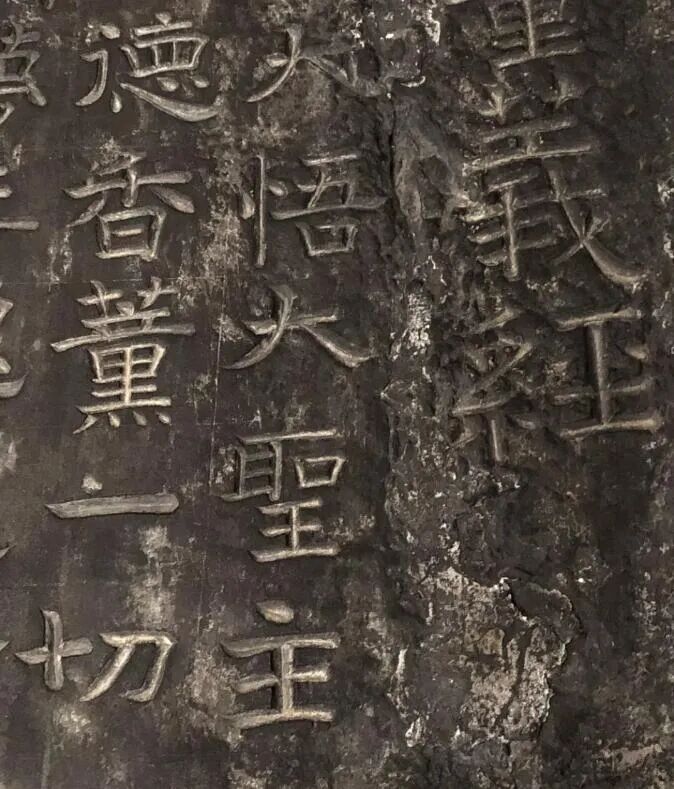 量義經
大悟大聖主
德香薰一切